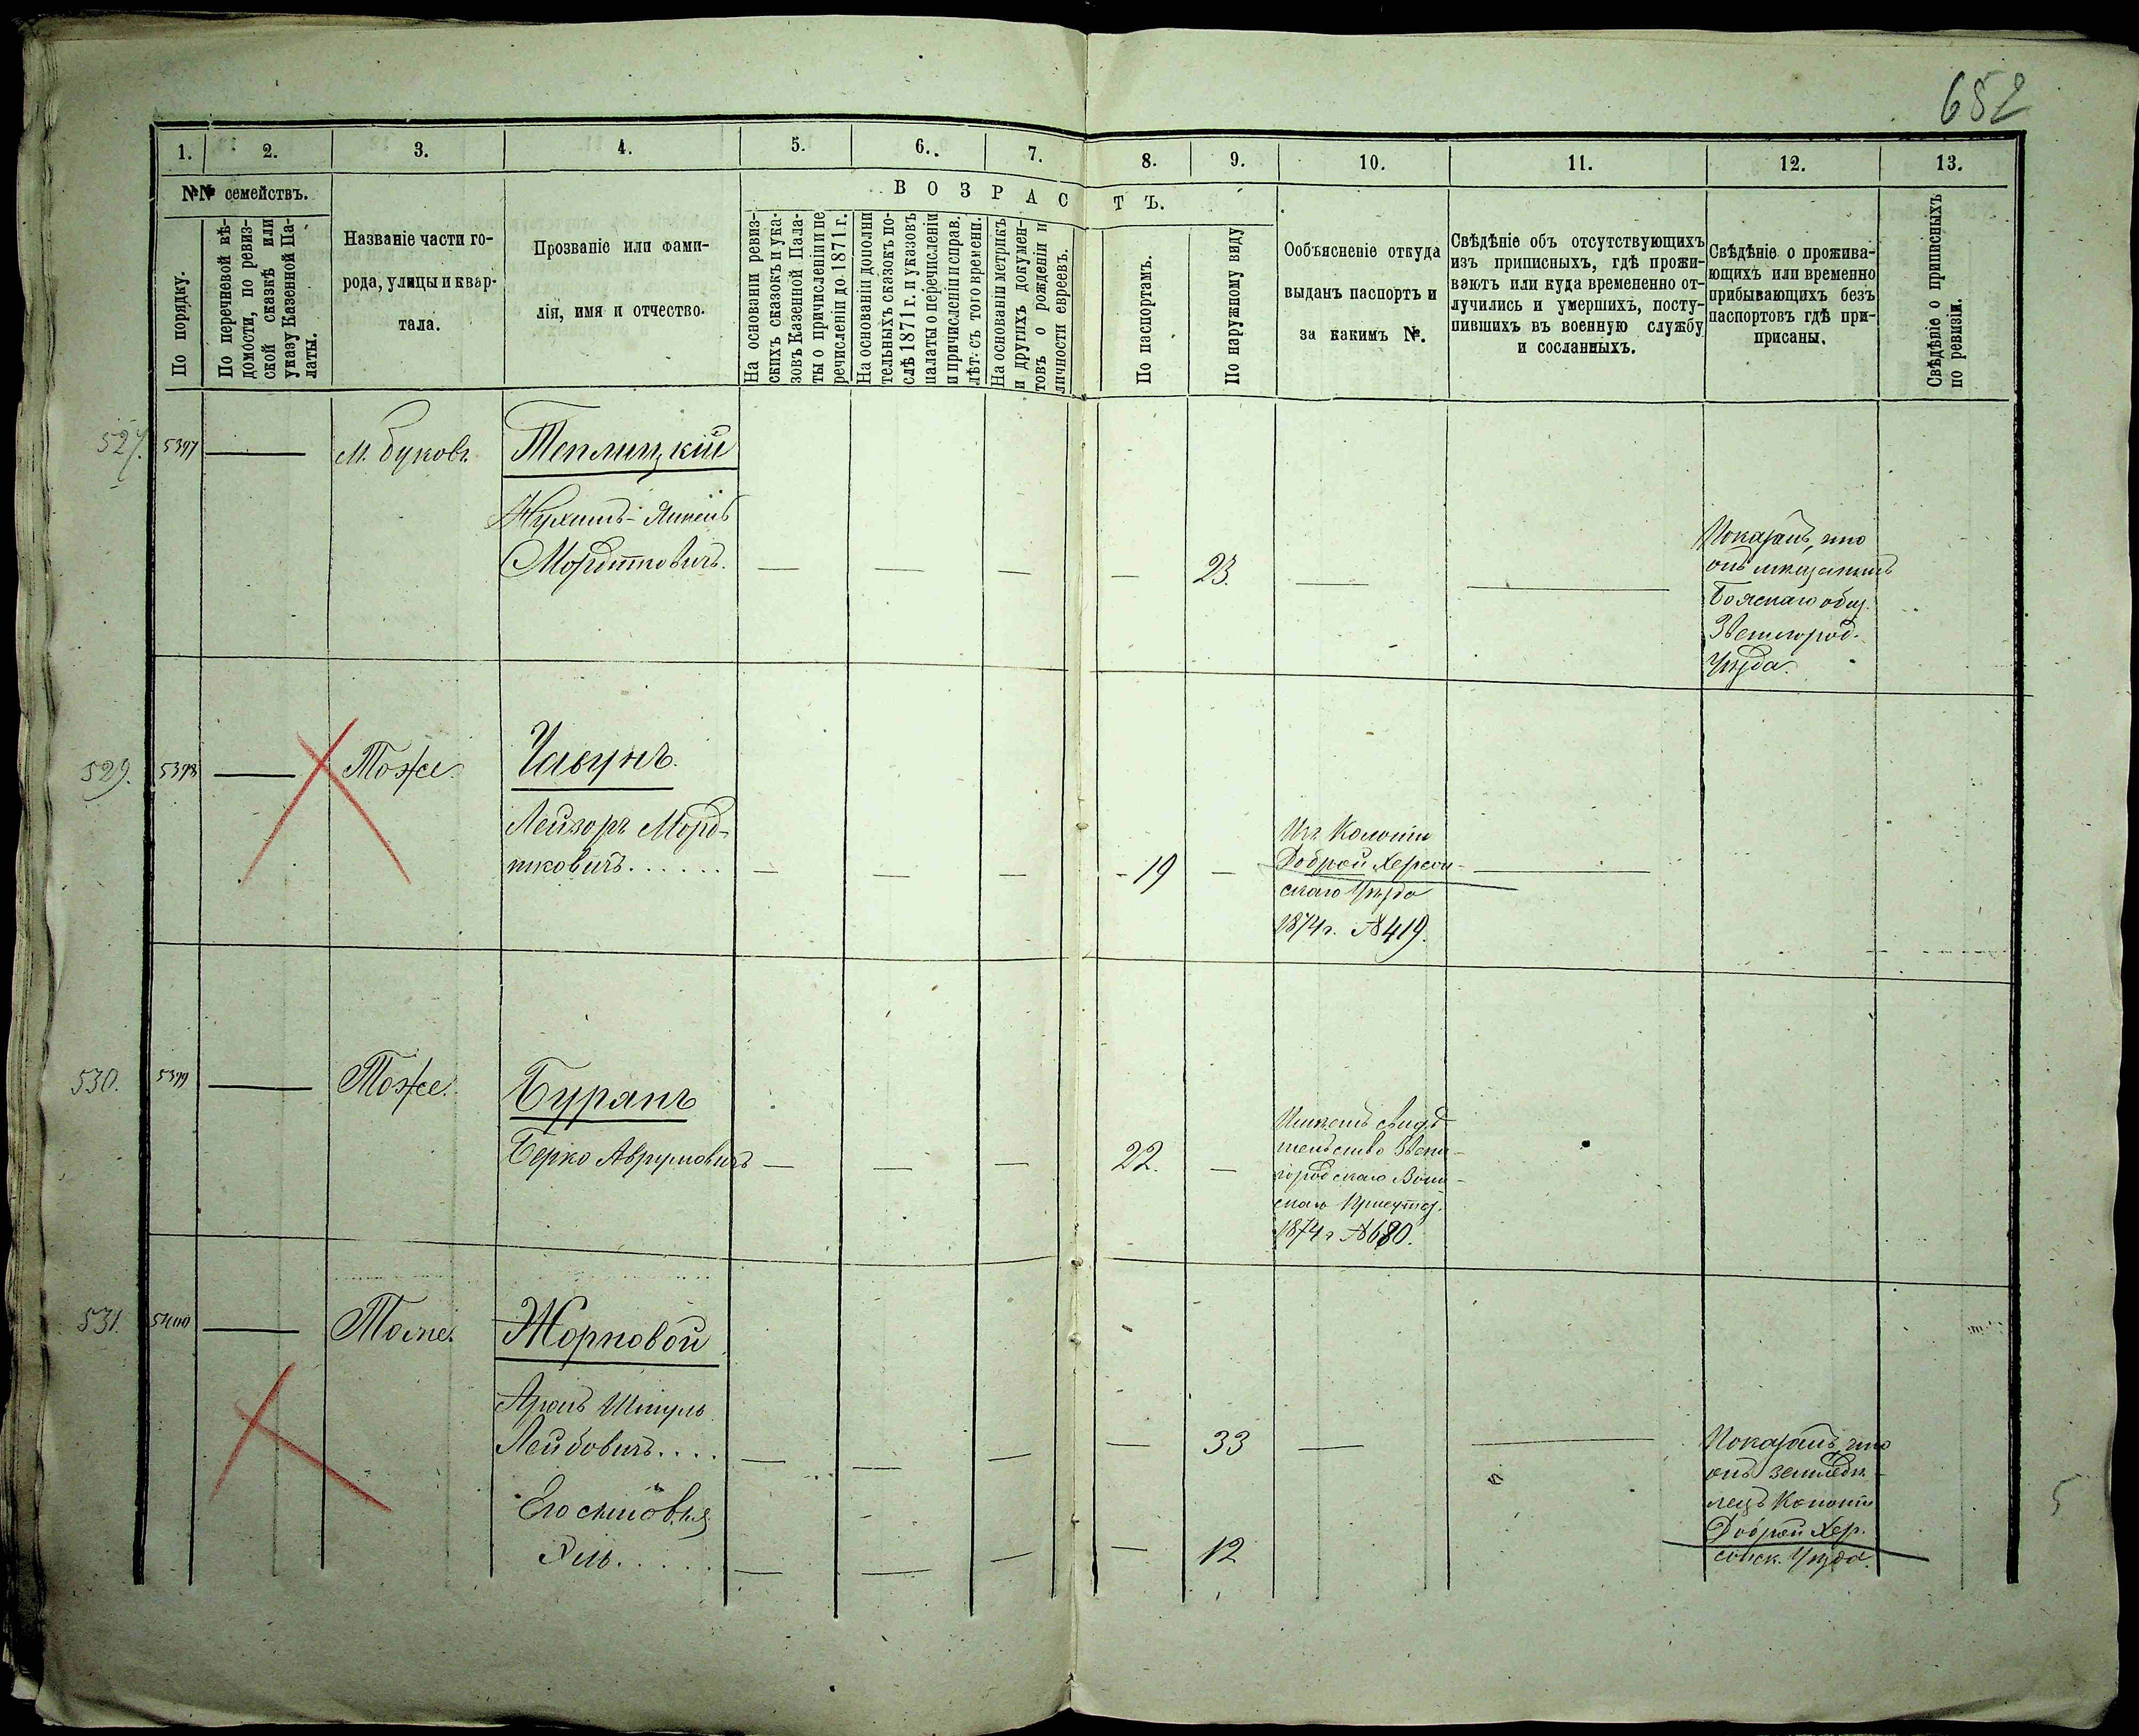 652
1. 2. 3. 4. 5. 6. 7. 8. 9. 10. 11. 12. 13.
№№ семействъ.
В О З Р А С Т Ъ.
По порядку.
По перечневой вѣ-
домости, по ревиз-
ской сказкѣ или
указу Казенной Па-
латы.
Названіе части го-
рода, улицы и квар-
тала.
Прозваніе или Фами-
лія, имя и отчество.
На основаніи ревиз-
скихъ сказокъ и ука-
зовъ Казенной Пала-
ты о причисленіи и пе
речисленіи до 1871 г.
На основаніи дополни
тельныхъ сказокъ по-
слѣ 1871 г. и указовъ
палаты о перечисленіи
и причисленіи исправ.
лѣт. съ того времени.
На основаніи метрикъ
и другихъ докумен-
товъ о рожденіи и
личности евреевъ.
По паспортамъ.
По наружному виду
Ообъясненіе откуда
выданъ паспортъ и
за какимъ №.
Свѣдѣніе объ отсутствующихъ
изъ приписныхъ, гдѣ прожи-
ваютъ или куда временно от-
лучились и умершихъ, посту-
пившихъ въ военную службу
и сосланныхъ.
Свѣдѣніе о прожива-
ющихъ или временно
прибывающихъ безъ
паспортовъ гдѣ при-
писаны.
Свѣдѣніе о приписныхъ
по ревизіи.
527. 5397 — М. Буковъ. Теплицкій
Нухимъ-Янкель
Мордтковичъ. — — — — 23. — —
Показалъ, что
онъ мѣщанинъ
общ.
Звенигород.
Уѣзда.
529. 5398 — Тоже. Чавунъ.
Лейзоръ Морд-
тковичъ...... — — — - 19 — —
Изъ Колоніи
Доброй Херсон-
скаго Уѣзда
1874 г. № 419.
530. 5399 — Тоже. Бурянъ
Берко Аврумовичъ — — — 22. —
Имѣетъ свидѣ-
тельство Звени-
городскаго Воин-
скаго Присутств.
1874 г № 680.
531. 5400 — Тоже. Жорновой
Аронъ Шмуль
Лейбовичъ.... — — — — 33 — —
Его сыновья
..... — — — — 12
Показалъ, что
онъ земледѣ-
лецъ Колоніи
Доброй Хер.
сонск. Уѣзда.
5